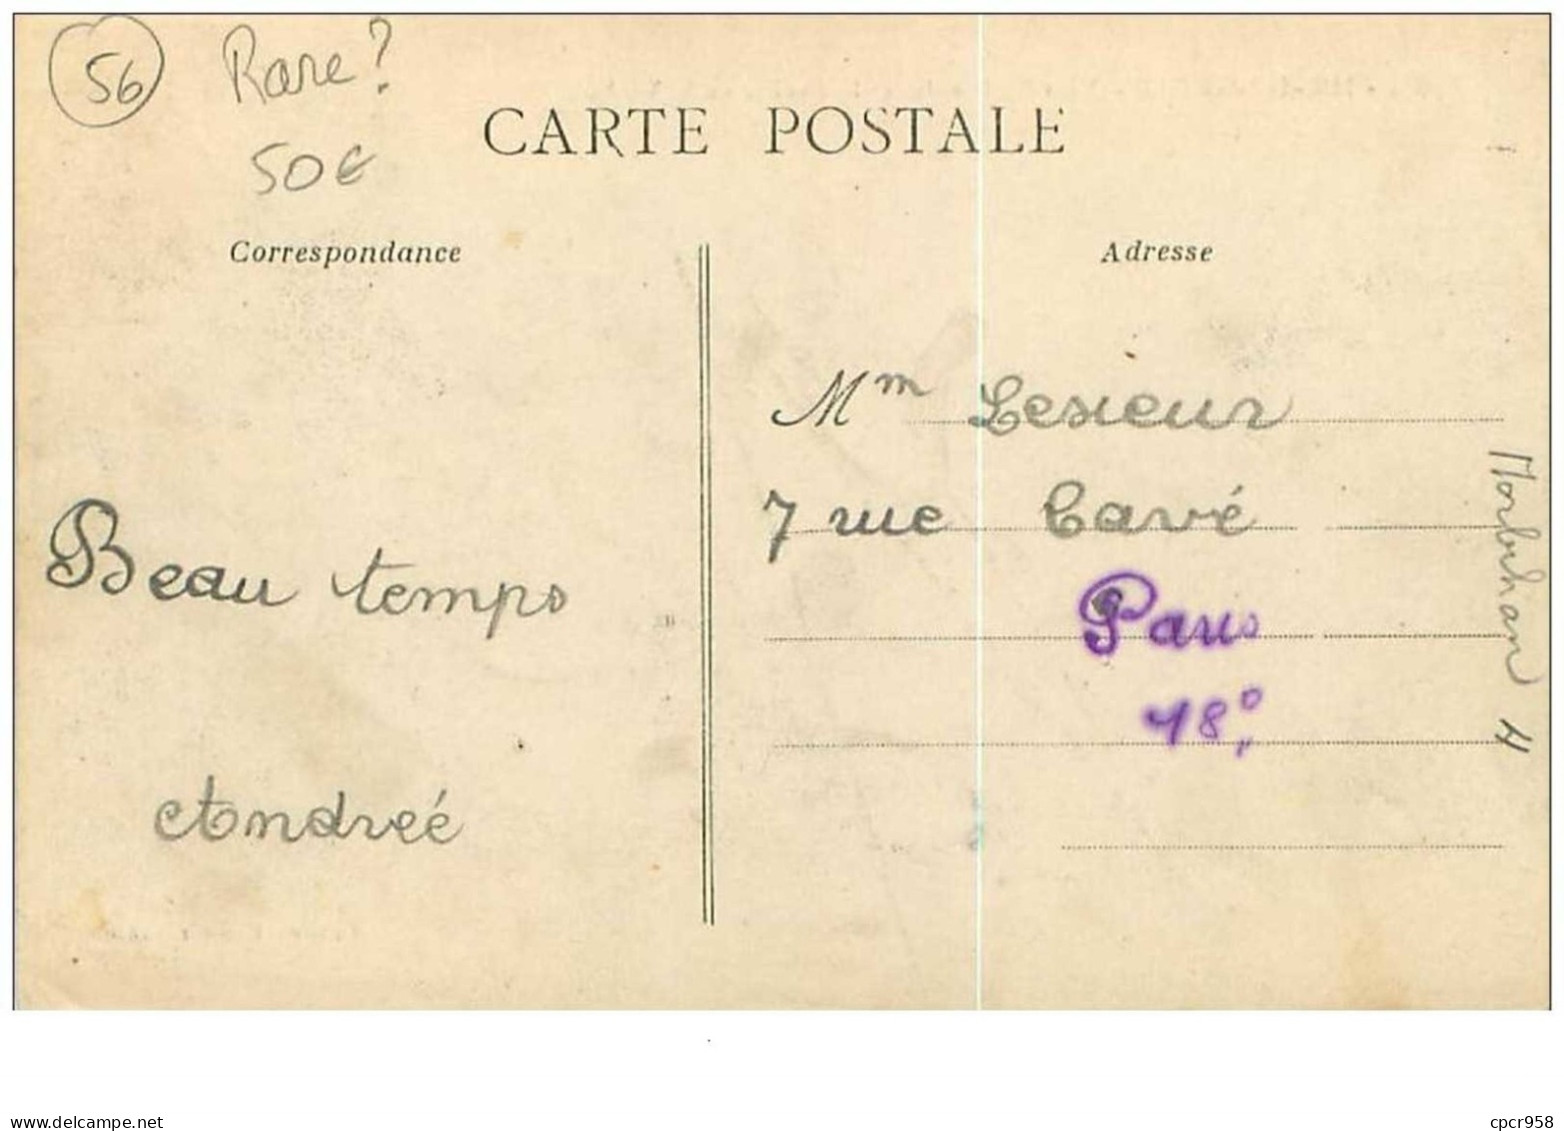 56
Rare ?
50€
CARTE POSTALE
Correspondance
Adresse
Mm Lesieur
7 rue Cavé
Paris
18e
Beau temps
Andreé
Morbihan 4
www.delcampe.net
cpcr958